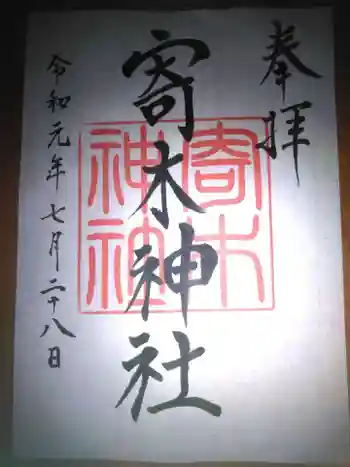 奉拝
寄木神社
寄木
神社
令和元年七月二十八日